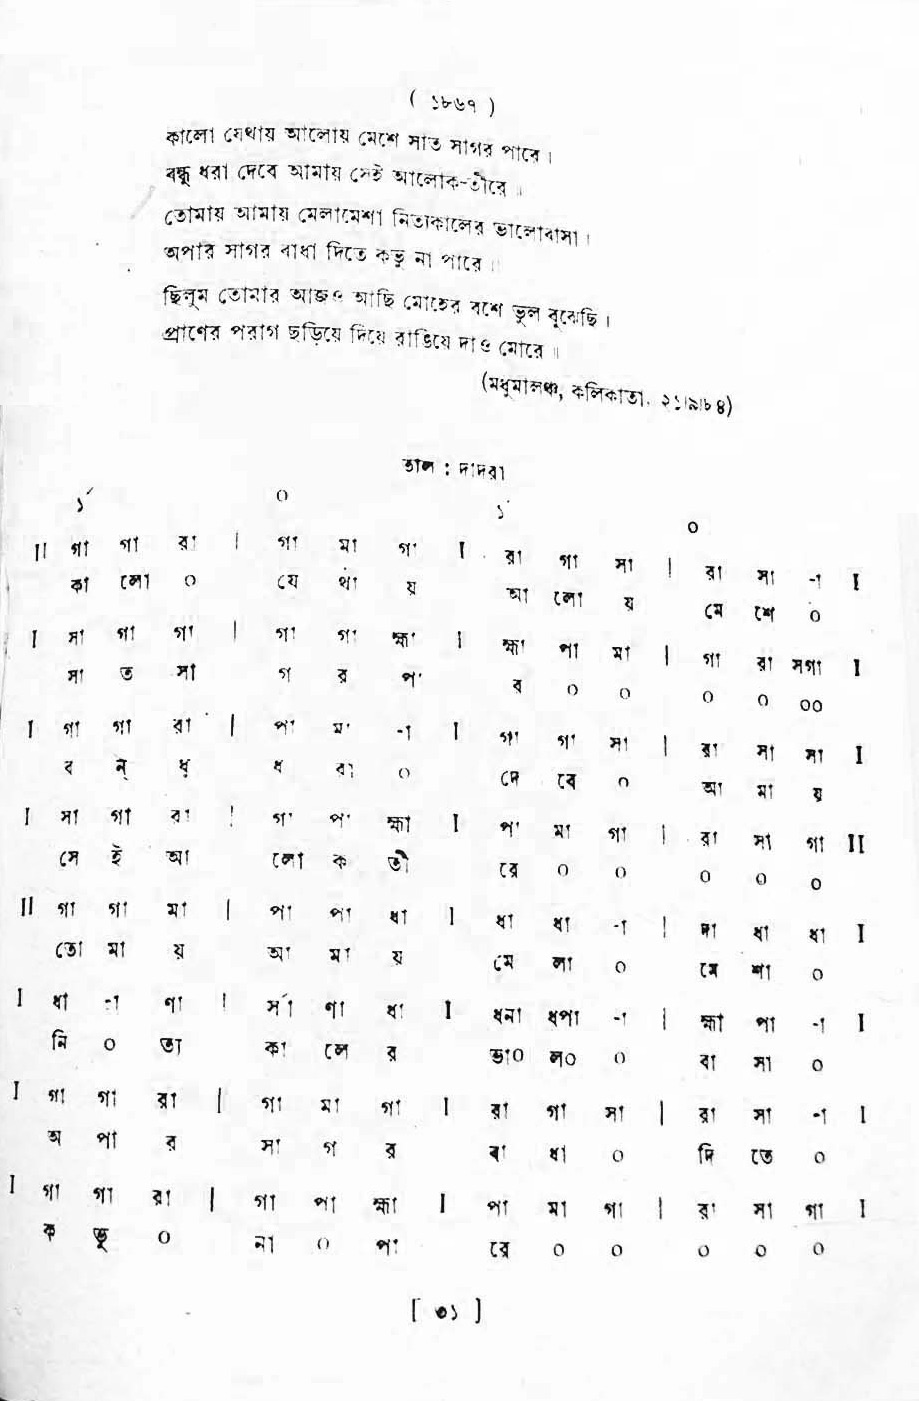 ( ১৮৬৭ )
কালো যেথায় আলোয় মেশে সাত সাগর পারে ।
বন্ধু ধরা দেবে আমায় সেই আলোক-তীরে ॥
তোমায় আমায় মেলামেশা নিত্যকালের ভালোবাসা ।
অপার সাগর বাধা দিতে কভু না পারে ॥
ছিলুম তোমার আজও আছি মোহের বশে ভুল বুঝেছি ।
প্রাণের পরাগ ছড়িয়ে দিয়ে রাঙিয়ে দাও মোরে ॥
(মধুমালঞ্চ, কলিকাতা, ২১।৯।৮৪)
তাল : দাদরা
১´ ০ ১´ ০
II গা গা রা | গা মা গা I রা গা সা | রা সা -া I
কা লো ০ যে থা য় আ লো য় মে শে ০
I সা গা গা | গা গা হ্মা I হ্মা পা মা | গা রা সগা I
সা ত সা গ র পা র ০ ০ ০ ০ ০০
I গা গা রা | পা মা -া I গা গা সা | রা সা সা I
ব ন্ ধু ধ রা ০ দে বে ০ আ মা য়
I সা গা রা | গা পা হ্মা I পা মা গা | রা সা গা II
সে ই আ লো ক তী রে ০ ০ ০ ০ ০
II গা গা মা | পা পা ধা I ধা ধা -া | দা ধা ধা I
তো মা য় আ মা য় মে লা ০ মে শা ০
I ধা -া ণা | র্সা ণা ধা I ধনা ধপা -া | হ্মা পা -া I
নি ০ ত্য কা লে র ভা০ ল০ ০ বা সা ০
I গা গা রা | গা মা গা I রা গা সা | রা সা -া I
অ পা র সা গ র বা ধা ০ দি তে ০
I গা গা রা | গা পা হ্মা I পা মা গা | রা সা গা I
ক ভু ০ না ০ পা রে ০ ০ ০ ০ ০
[ ৩১ ]